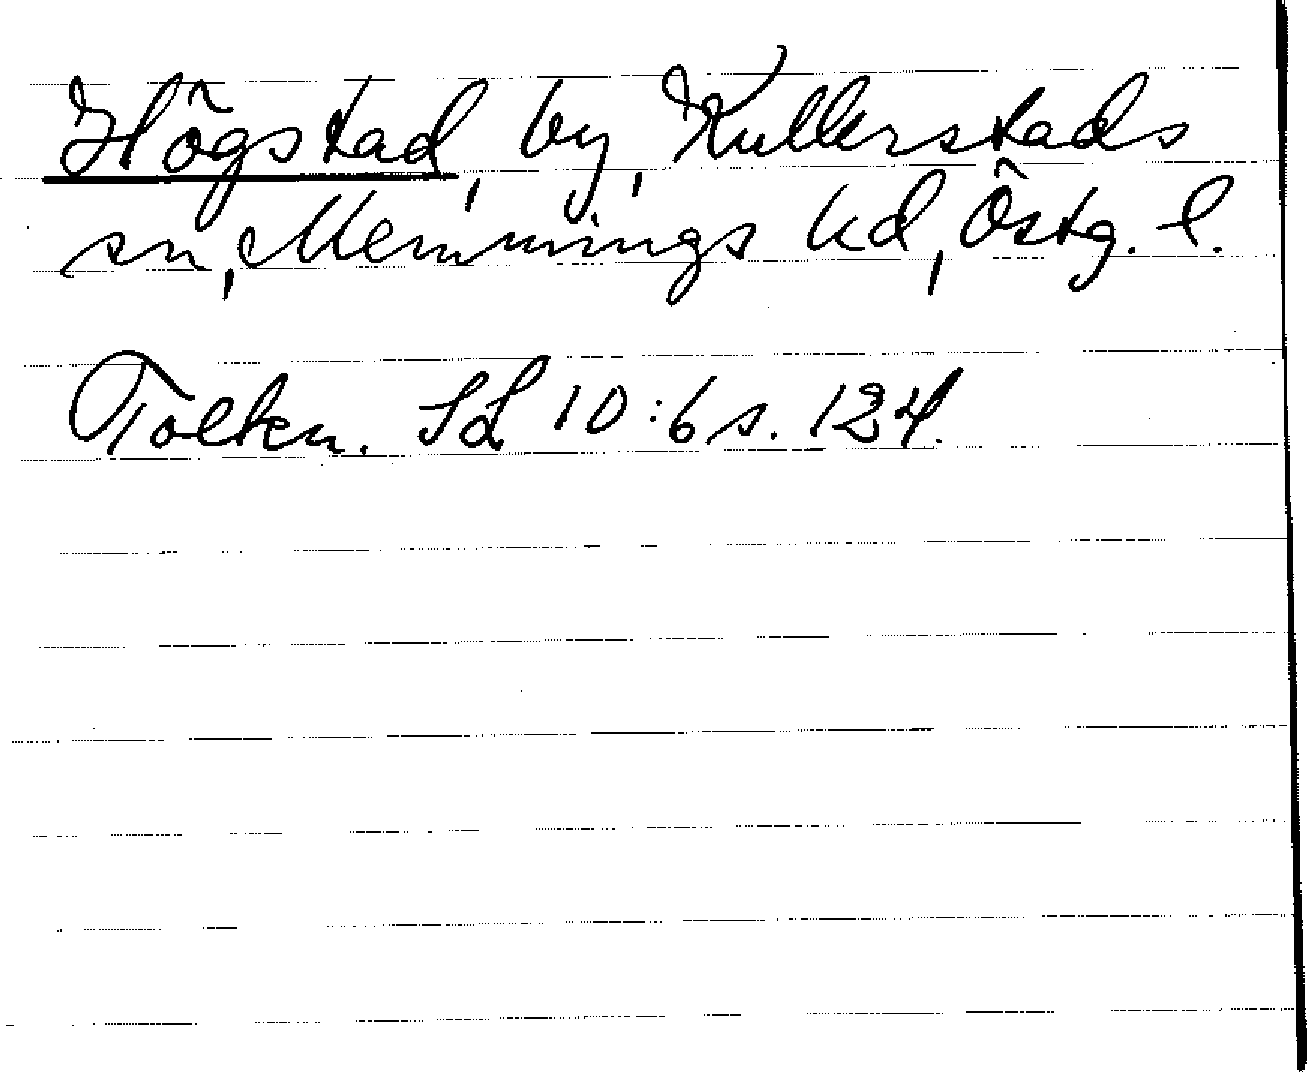 Högstad, by, Kullerstads
sn, Memmings hd, Östg. l.
Tolken. SL 10:6 s. 124.